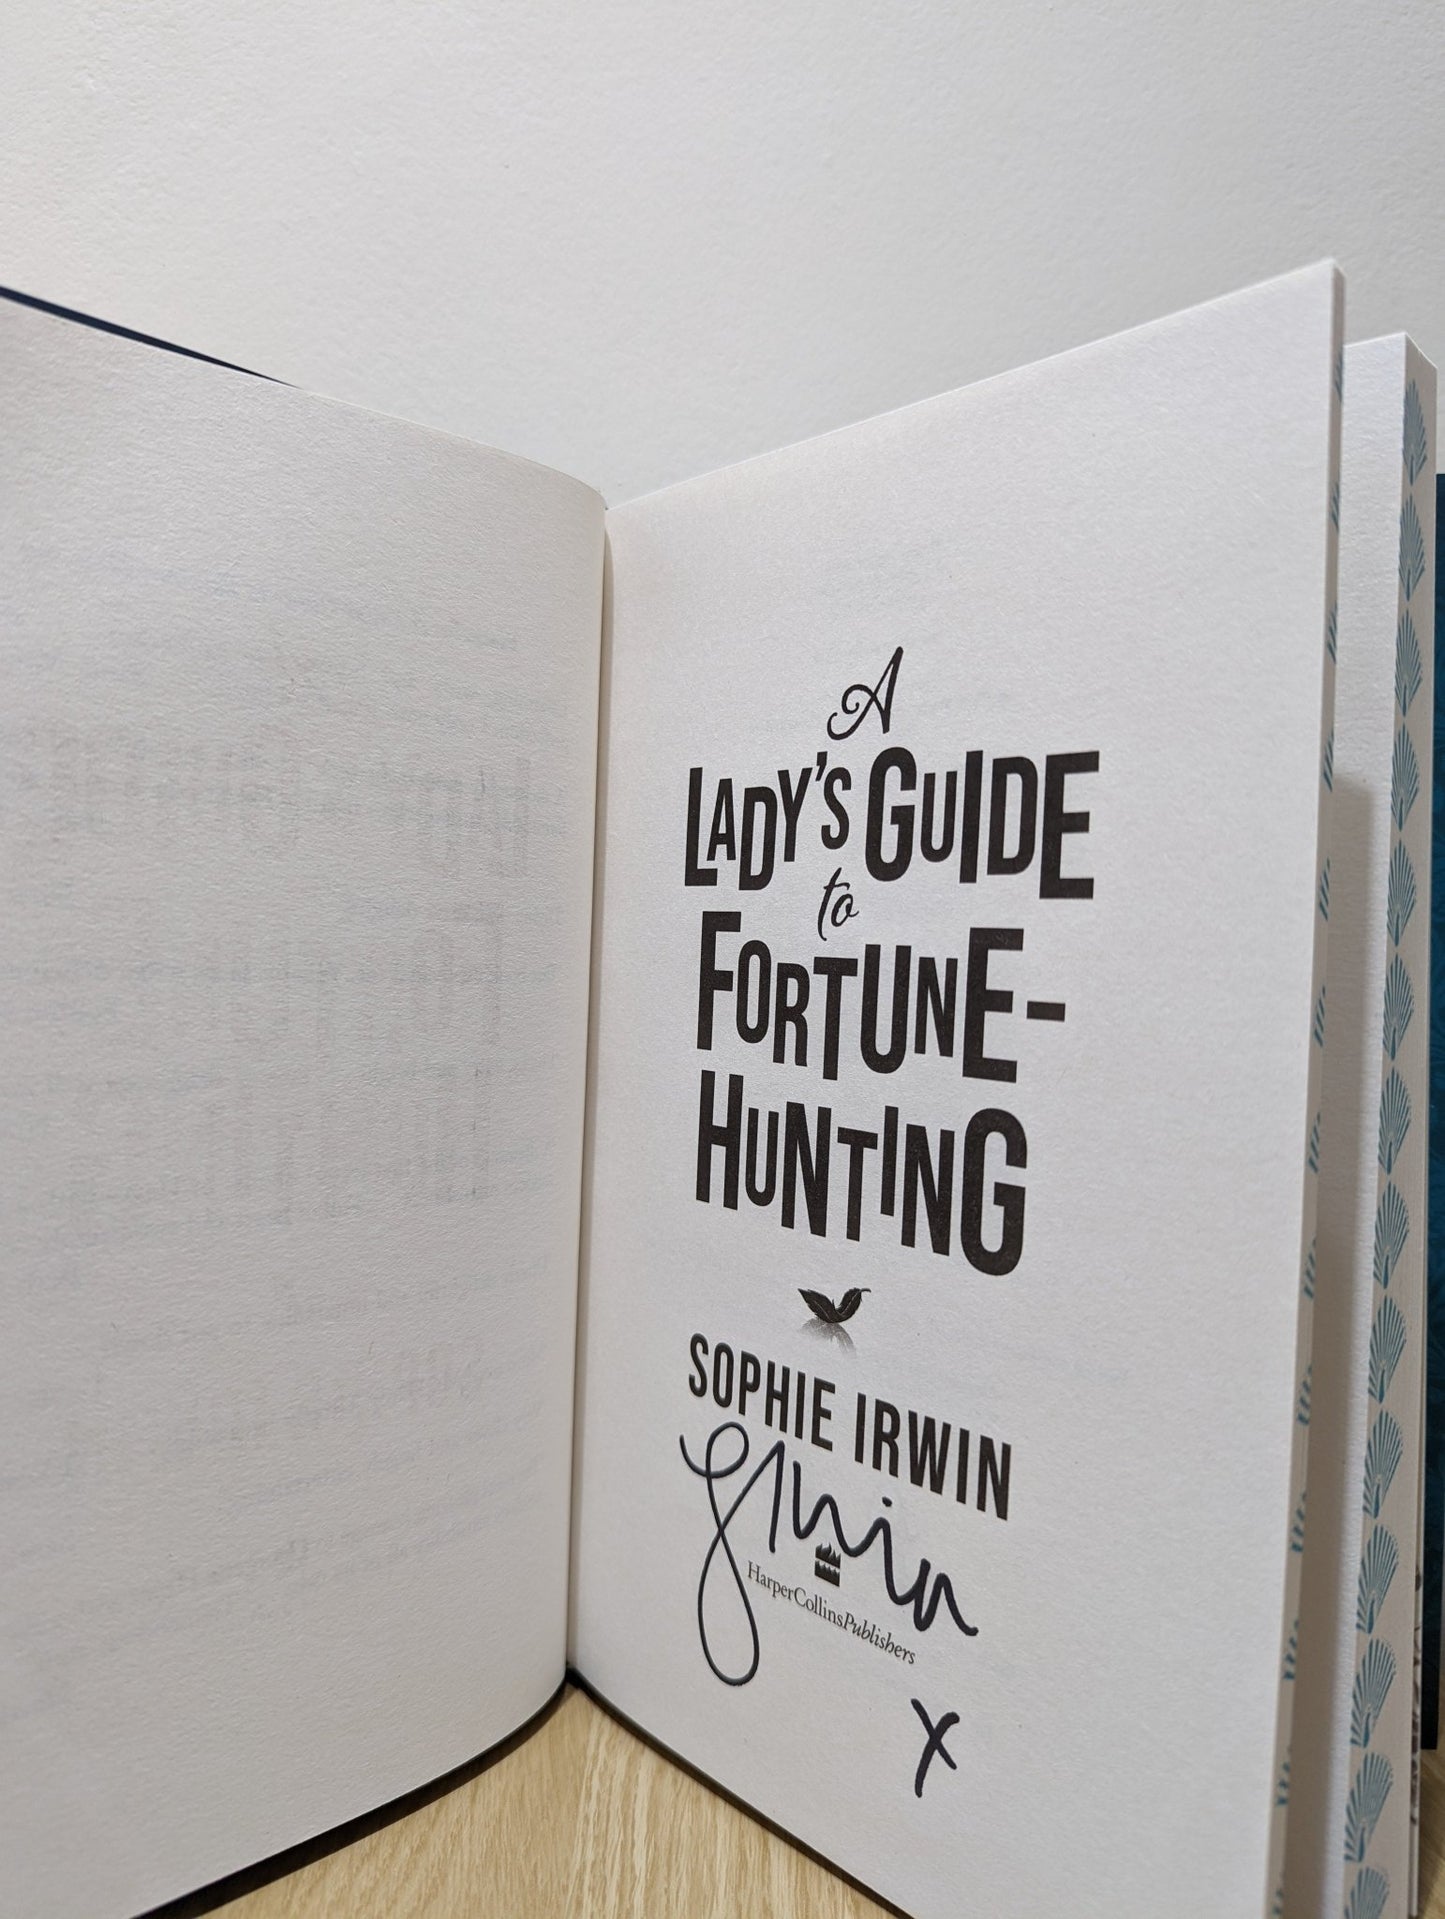 A
LADY'S GUIDE
to
FORTUNE-
HUNTING
SOPHIE IRWIN
HarperCollinsPublishers
x